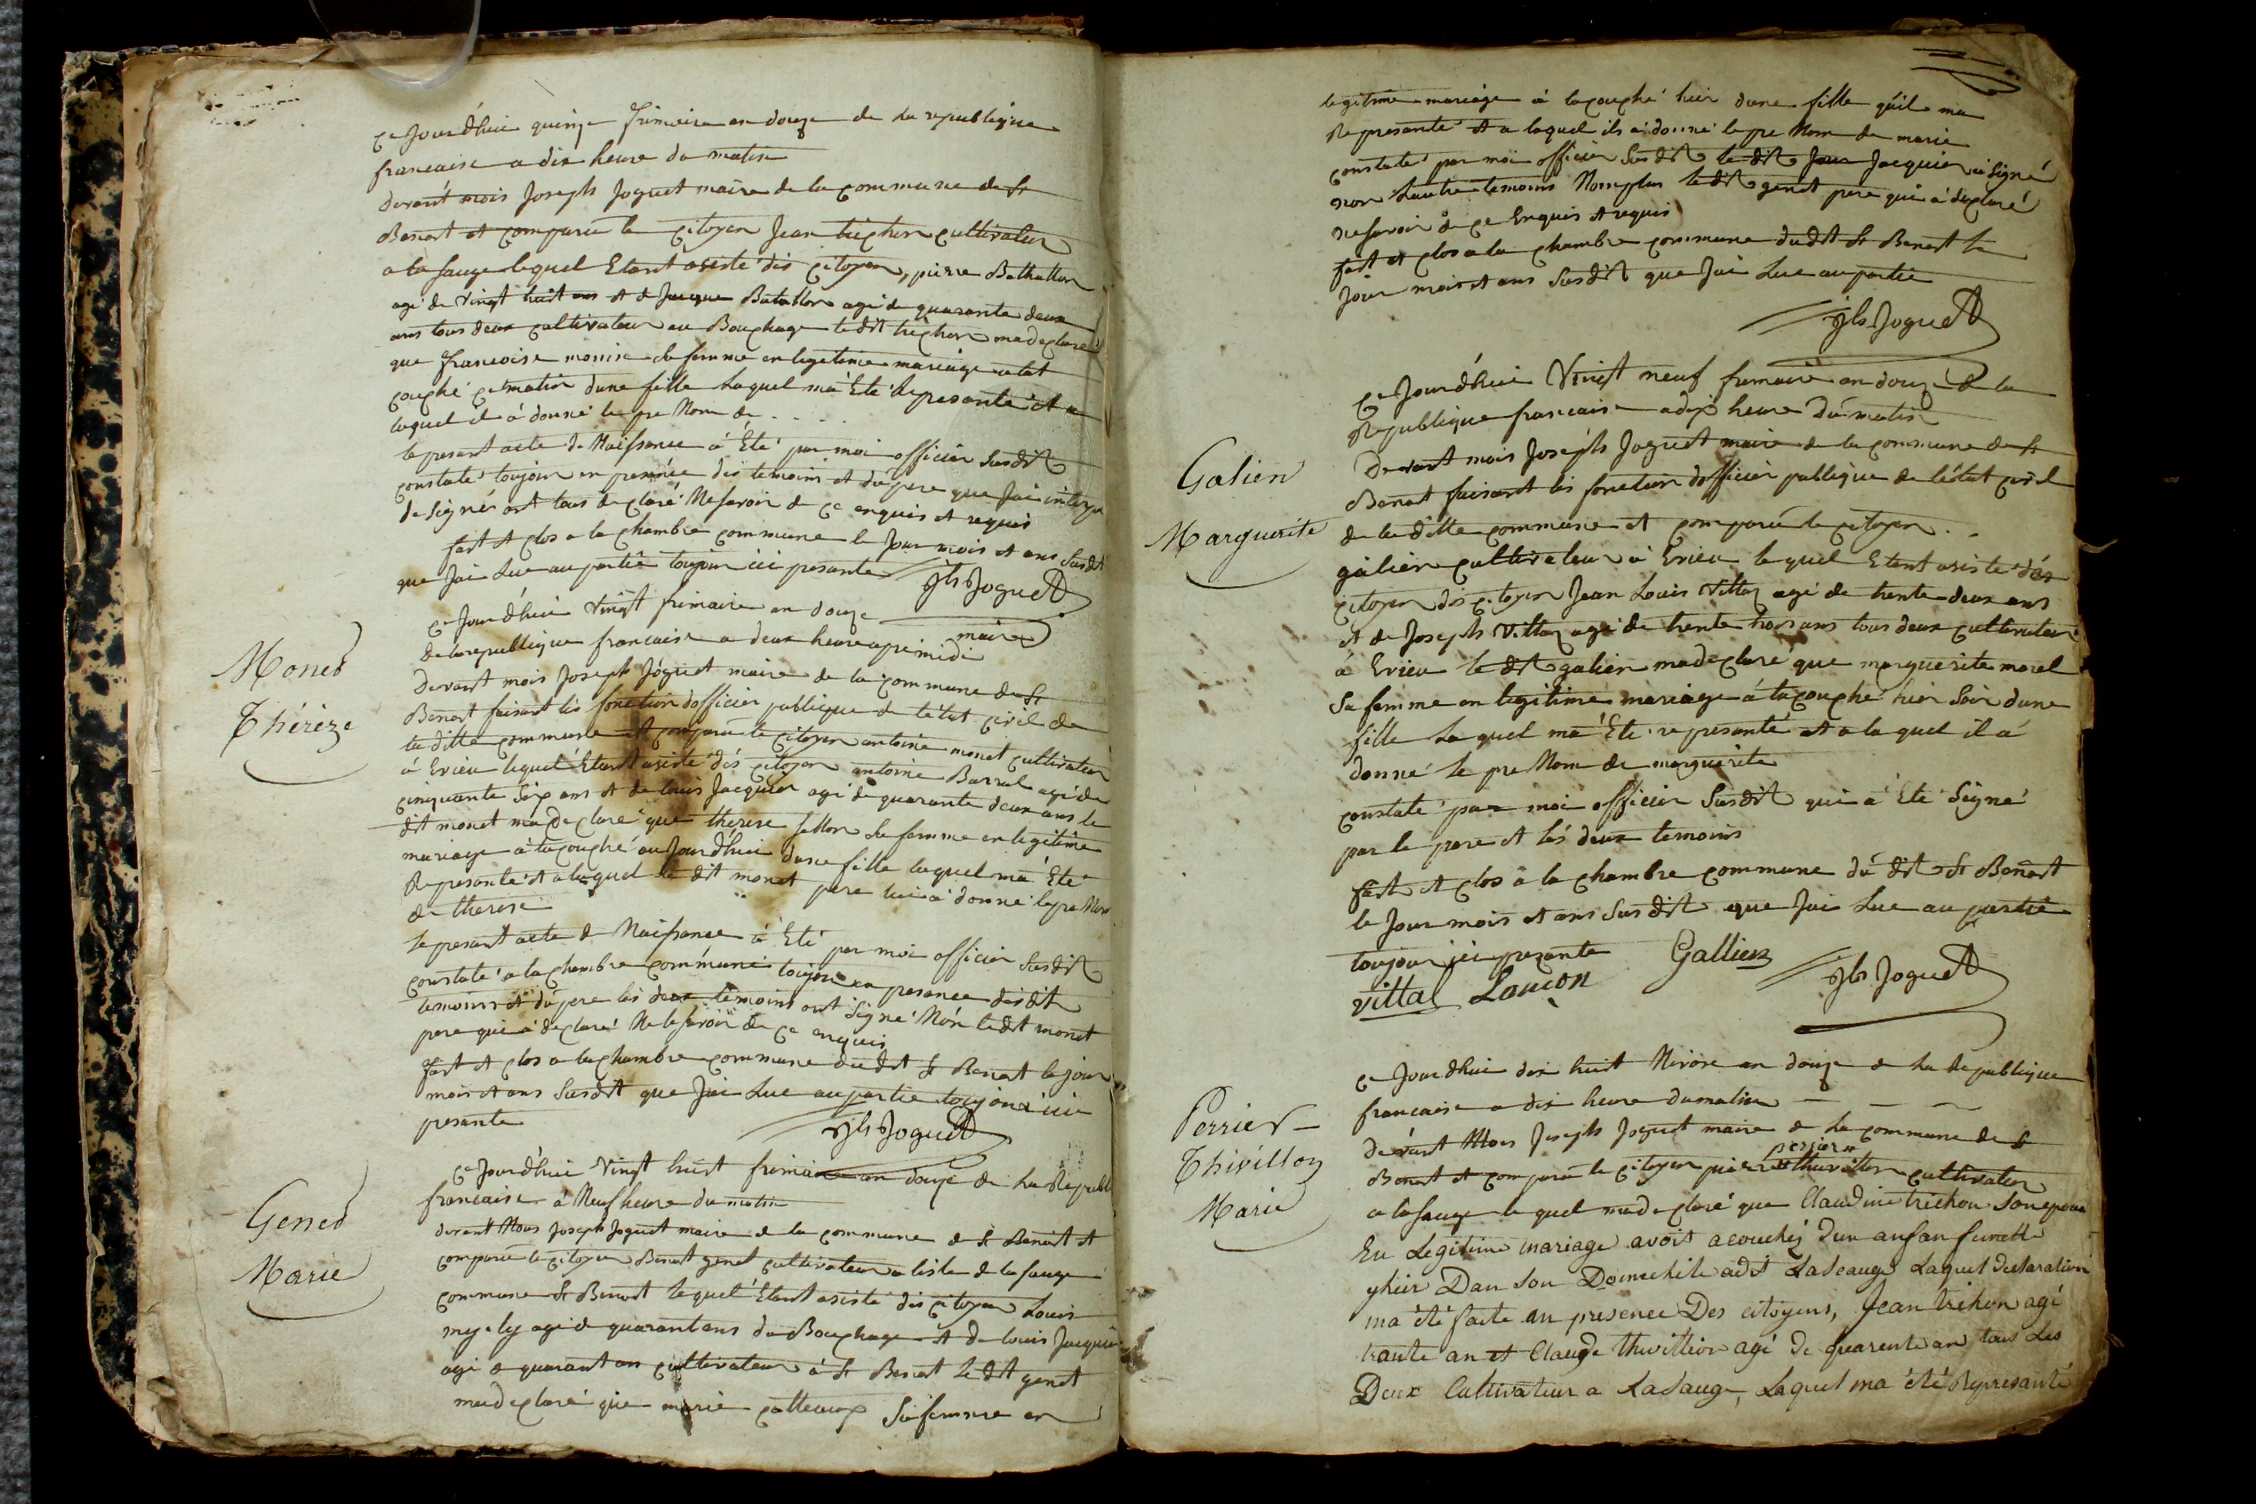 ce Jourdhui quinze frimaire an douze de la republique
francaise a dix heure du matin
devant mois Joseph Joguet maire de la commune de St
Benoit et comparu le citoyen Jean trichon cultivateur
a la Sauge lequel Etant asisté dis citoyen, pierre Bathallion
agé de vingt huit ans et de Jacque Batallion agé de quarante deux
ans tous deux cultivateur au Bouchage ledit trichon ma declaré
que francoise monin sa femme en legitime mariage a tat
couché ce matin dune fille laquel ma Eté Represanté et a
laquel il a donné le pre Nom de . . . .
le presant acte de Naissance à Eté par moi officier Susdit
constaté toujour en presence dis temoins et du pere que Jai interpe
de Signér ont tous declaré Ne savoir de ce enquis et requis
fait et clos a la chambre commune le Jour mois et ans Susdit
que Jai Lue au partie toujour ici presante Jh Joguet
maire
Monet
Thérèze
ce Jourdhui Vingt frimaire an douze
de la republique francaise a deux heure apre midi
Devant mois Joseph Joguet maire de la commune de St
Benoit faisant lis fonction dofficier publique de létat civil de
la ditte commune et comparu le citoyen antoine monet cultivateur
à Evieu lequel Etant asisté dés citoyen antoine Barral agé de
cinquante Six ans et de Louis Jacquier agé de quarante deux ans le
dit monet ma declaré que thérèse sa femme en legitime
mariage à tacouché au Jourdhui dune fille laquel ma Eté
Represanté et a laquel le dit monet pere lui a donné le pre Nom
de therese
le presant acte de Naissance à Eté par moi officier Susdit
constaté a la chambre commune toujour en presence dis dit
temoins et du pere lis deux temoins ont Signé Nón ledit monet
pere qui à declaré Ne le savoir de ce enquis
fait et clos a la chambre commune dudit St Benoit le jour
mois et ans Susdit que Jai Lue au partie toujour ici
presante
Jh Joguet
Genet
Marie
ce Jourdhui Vingt huit frimaire an douze de la Republ
francaise à Neuf heure du matin
devant Mous Joseph Joguet maire de la commune de St Benoit et
comparu le citoyen Benoit genet cultivateur a lisle de la Sauge
commune St Benoit lequel Etant asisté dis citoyen Louis
agé de quarant ans du Bouchage et de Louis Jacquier
agé de quarant an cultivateur à St Benoit Le dit genet
ma declaré que marie Sa femme en
legitime mariage à tacouché hier dune fille quil ma
Represanté et a laquel ils a donné le pre Nom de marie
constaté par moi officier Susdit le dit Jacquier à Signé
non Lautre temoins Nomplus le dit genet pere qui à declaré
ne savoir de ce Enquis et requis
fait et clos a la chambre commune dudit St Benoit le
Jour mois et ans Susdit que Jai Lue au partie
Jh Joguet
Galien
Marguerite
ce Jourdhui Vingt neuf frimaire an douze de la
Republique francaise a dix heure du matin
Devant mois Joséph Joguet maire de la commune de St
Benoit faisant lés fonction dofficier publique de létat civil
de la ditte commune et comparu le citoyen . .
galien cultivateur à Evieu lequel Etant asisté dés
citoyen dis citoyen Jean Louis Vittoz agé de trente deux ans
et de Joseph Vittoz agé de trente trois ans tous deux cultivateur
à Evieu le dit galien ma declaré que marguerite morel
Sa femme en legitime mariage à tacouché hier Soir dune
fille Laquel ma Eté represanté et a laquel il a
donné le pre Nom de marguerite
constaté par moi officier Susdit qui à Eté Signé
par le pere et lés deux temoins
fait et clos à la chambre commune dú dit St Benoit
le Jour mois et ans Susdit que Jai Lue au partie
toujour ici presante Gallien
vittal Loucon Jh Joguet
Perrier
Thivillon
Marie
ce Jourdhui dix huit Nivose an douze de la Republique
francaise a dix heure du matin
devant Mous Joseph Joguet maire de la commune de St
perrier
Benoit et comparu le citoyen pierre thivillion cultivateur
a la Sauge lequel ma declaré que Claudine trichon Son epouse
En Legitime mariage avoit acouchéz dun anfan fumelle
yhier Dan Son Domichile adit LaSauge Laquel declaration
ma été faite an presence Des citoyens, Jean trichon agé
trante an et Claude thivillion agé de quarente an tous Les
Deux Cultivateur a LaSauge, Laquel ma été Represanté